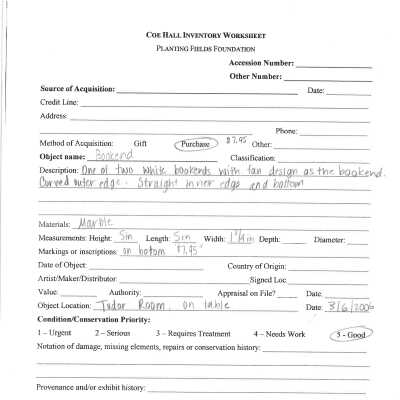 COE HALL INVENTORY WORKSHEET
PLANTING FIELDS FOUNDATION
Accession Number:
Other Number:
Source of Acquisition: Date:
Credit Line:
Address:
Phone:
Method of Acquisition: Gift Purchase $7.95 Other:
Object name: Bookend Classification:
Description: One of two white bookends with tan design as the bookend.
Curved outer edge. Straight inner edge and bottom
Materials: Marble
Measurements: Height: 5in Length: 5in Width: 1 3/4in Depth: Diameter:
Markings or inscriptions: on bottom "$7.95"
Date of Object: Country of Origin:
Artist/Maker/Distributor: Signed Loc
Value: Authority: Appraisal on File? Date:
Object Location: Tudor Room, on table Date: 3/6/2006
Condition/Conservation Priority:
1 – Urgent 2 – Serious 3 – Requires Treatment 4 – Needs Work 5 - Good
Notation of damage, missing elements, repairs or conservation history:
Provenance and/or exhibit history: